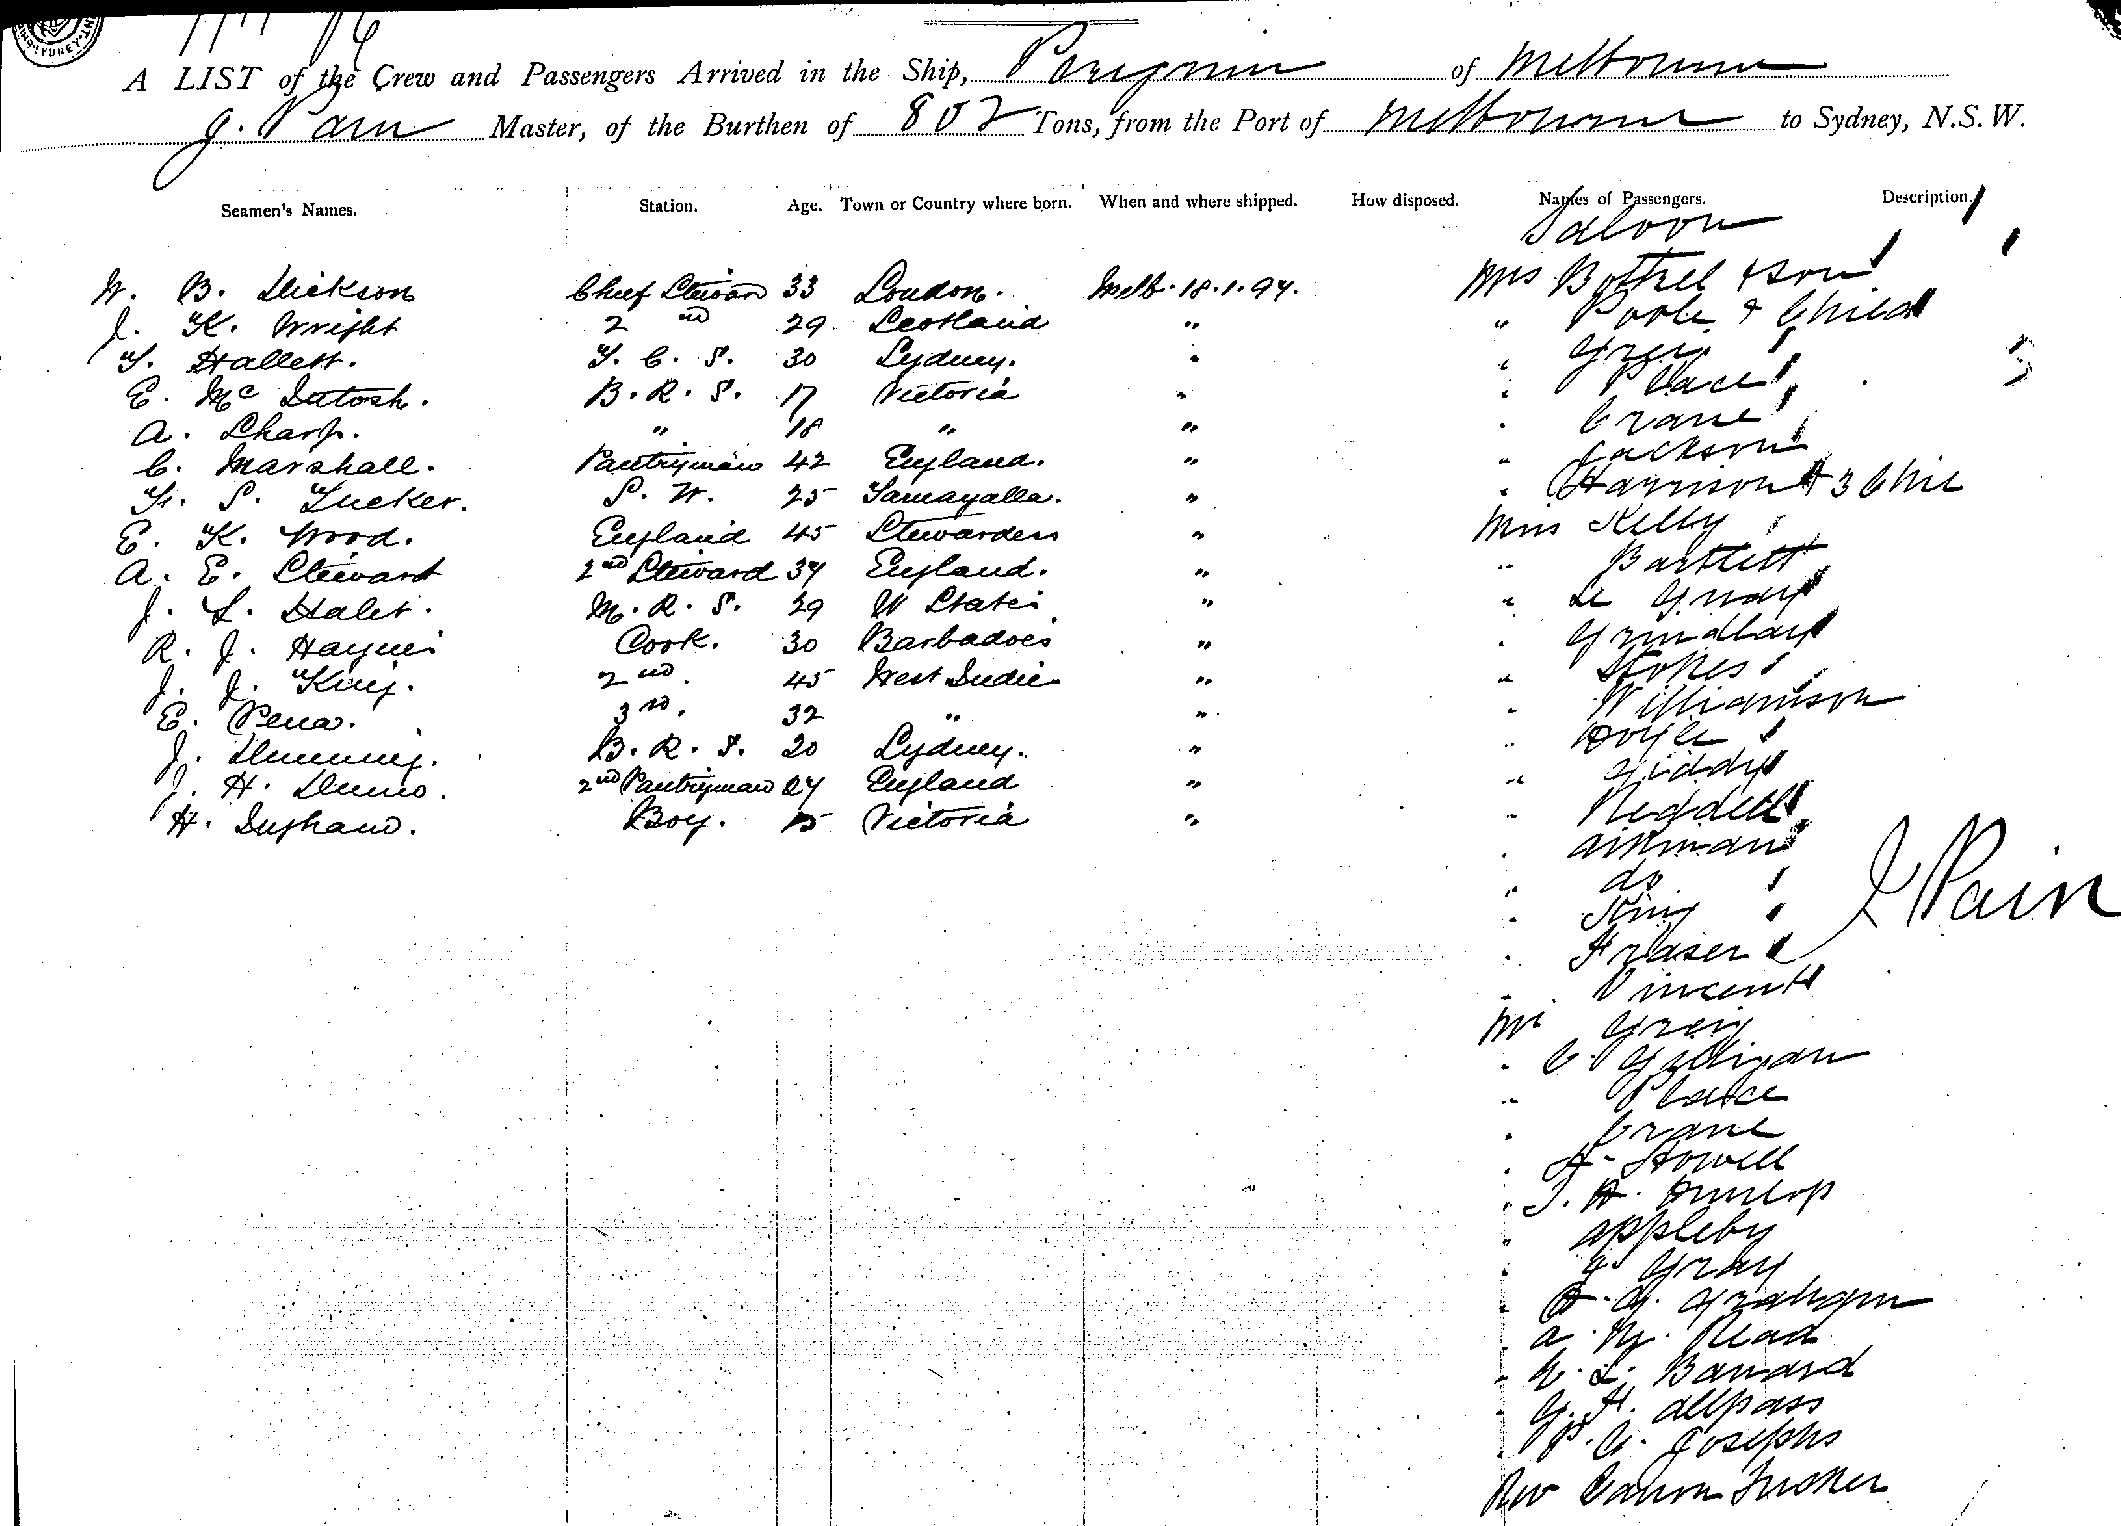 A LIST of the Crew and Passengers Arrived in the Ship, Peregrine of Melbourne
J. Pain Master, of the Burthen of 802 Tons, from the Port of Melbourne to Sydney, N.S.W.
Seamen's Names. Station. Age. Town or Country where born. When and where shipped. How disposed. Names of Passengers. Description.
Saloon
W. B. Dickson Chief Steward 33 London. Melb. 18.1.94. Mrs Bottrel & son
J. K. Wright 2nd 29 Scotland " " Poole & Child
T. Hallett. F. C. S. 30 Sydney. " " Greig
E. Mc Intosh. B. R. S. 17 Victoria " " Place
A. Sharp. " 18 " " " Crane
C. Marshall. Pantryman 42 England. " " Jackson
F. S. Tucker. S. W. 25 " " Harrison & 3 Chil
E. K. Wood. England 45 Stewardess " Miss Kelly
A. E. Stewart 2nd Steward 34 England. " " Bartlett
J. L. M. R. S. 29 U States " " Le Gray
R. J. Haynes Cook. 30 Barbadoes " " Grindlay
J. J. King. 2nd. 45 West Indies " " Stokes
E. Pena. 3rd. 32 " " " Williamson
J. B. R. S. 20 Sydney. " " Doyle
J. H. 2nd Pantryman 24 England " " Giddy
H. Ingham. Boy. 15 Victoria " "
" Aitkman
" do
" King
J Pain
" Fraser
" Vincent
Mr Greig
" C. Galligan
" Place
" Crane
" A. Howell
" J. H. Dunlop
" Appleby
" J. Gray
" Graham
" A. M. Read
" L. Barnard
" G. H. Allpass
" Josephs
Rev Canon Tucker